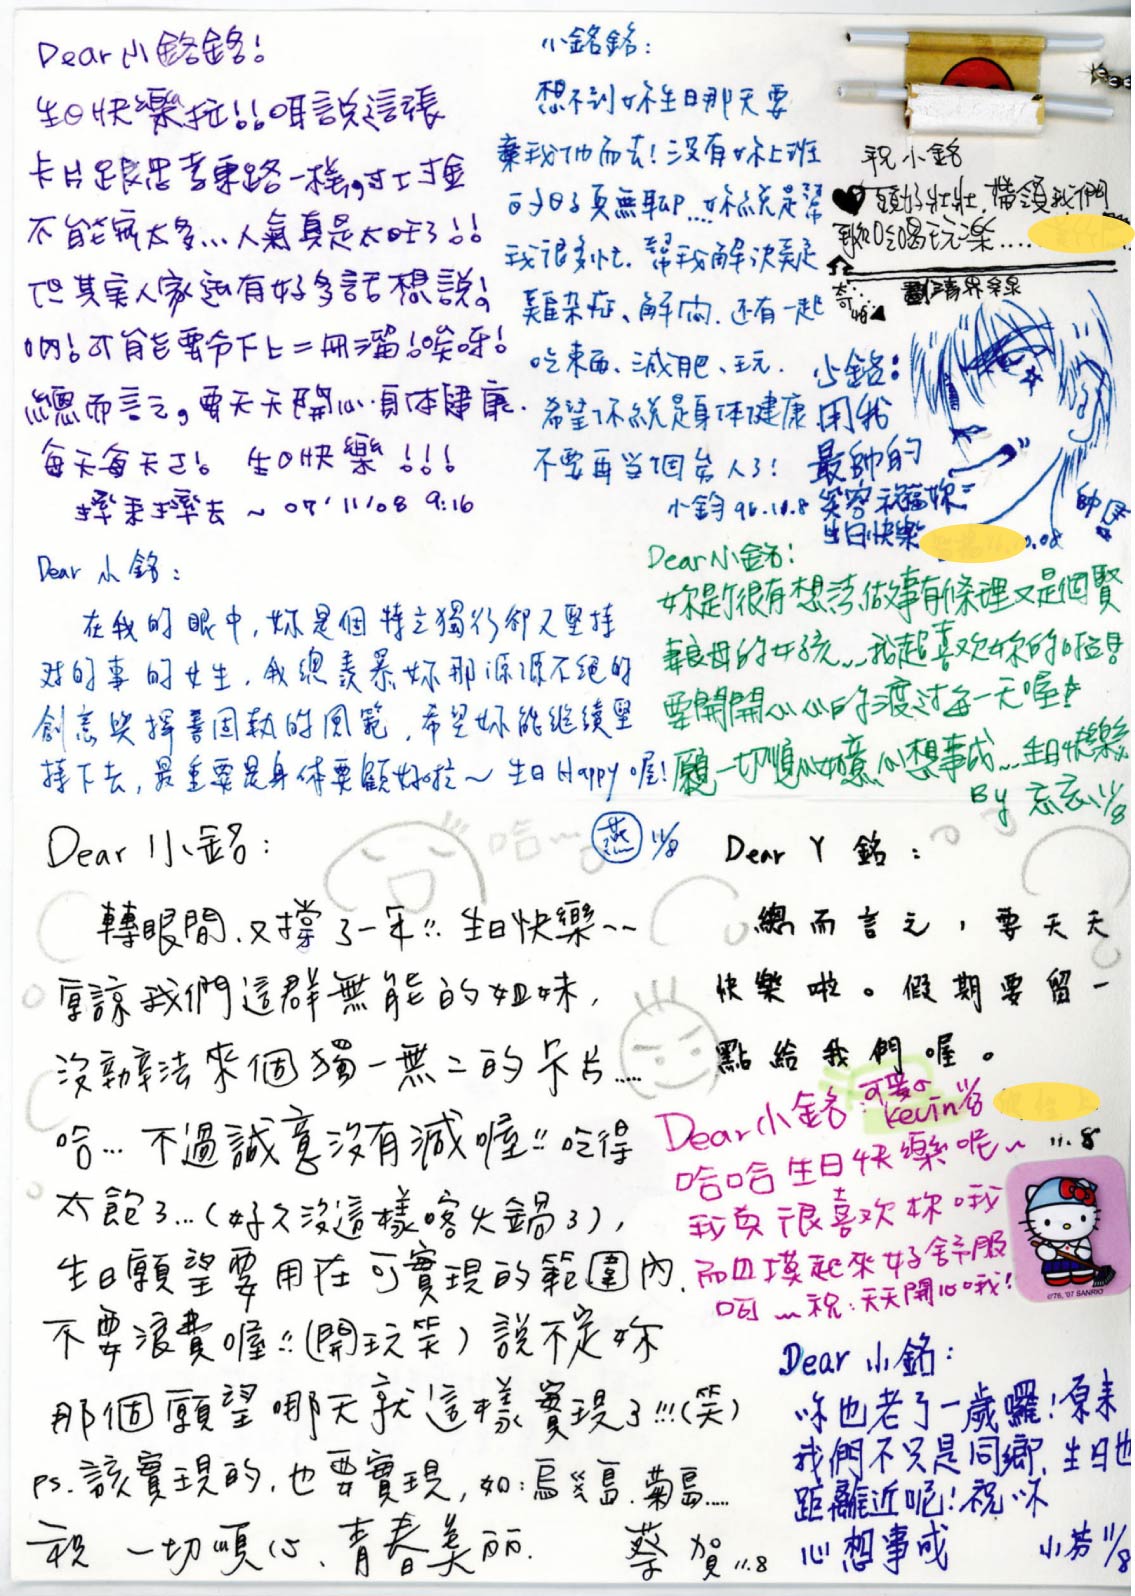 Dear 小銘銘!
生日快樂拉!!咱說這張
卡片跟忠孝東路一樣。寸土寸金
不能寫太多...人氣真是太旺了!!
但其實人家還有好多話想說!
總而言之。要天天開心.身体健康.
每天每天さ! 生日快樂!!!
~ 07' 11/08 9:16
小銘銘:
想不到妳生日那天要
棄我們而去!沒有妳上班
的日子真無聊....妳總是幫
我很多忙.幫我解決疑
難杂症、解悶.还有一起
吃東西、減肥、玩.
希望妳總是身体健康
不要再當個
小鈞 96.10.8
祝小銘
頭好壯壯.帶領我們
到処吃喝玩樂.....
小銘:
用我
最帥的
笑容祝福妳=
生日快樂
.08
Dear 小銘:
在我的眼中,妳是個特立獨行卻又堅持
对的事的女生,我總羨慕妳那源源不絕的
創意與擇善固執的風範,希望妳能繼續堅
持下去,最重要是身体要顧好啦~ 生日Happy喔!
燕 11/8
Dear 小銘:
妳是很有想法,做事有條理又是個賢
妻良母的女孩...我超喜欢妳的啦!!
要開開心心的渡过每一天喔!
願一切順心如意心想事成...生日快樂
By 11/8
Dear 小銘:
哈~
轉眼間.又撐了一年!!生日快樂~~
原諒我們這群無能的姐妹,
沒辦法來個獨一無二的卡片.....
哈...不過誠意沒有減喔!!吃得
太飽了...(好久沒這樣喀火鍋了),
生日願望要用在可實現的範圍內.
不要浪費喔!!(開玩笑)說不定妳
那個願望哪天就這樣實現了!!!(笑)
ps.該實現的,也要實現,如:烏ㄆ島.菊島.....
祝 一切順心、青春美丽.
蔡 賀 11.8
Dear ㄚ銘:
總而言之,要天天
快樂啦。假期要留一
點給我們喔。
11.8
Dear 小銘:可愛の
kevin 11/8
哈哈生日快樂呢~
我真很喜欢妳哦
而且摸起來好舒服
呵~祝:天天開心哦!
©'76, '07 SANRIO
Dear 小銘:
你也老了一歲囉!原來
我們不只是同鄉,生日也
距離近呢!祝你
心想事成 小芳 11/8